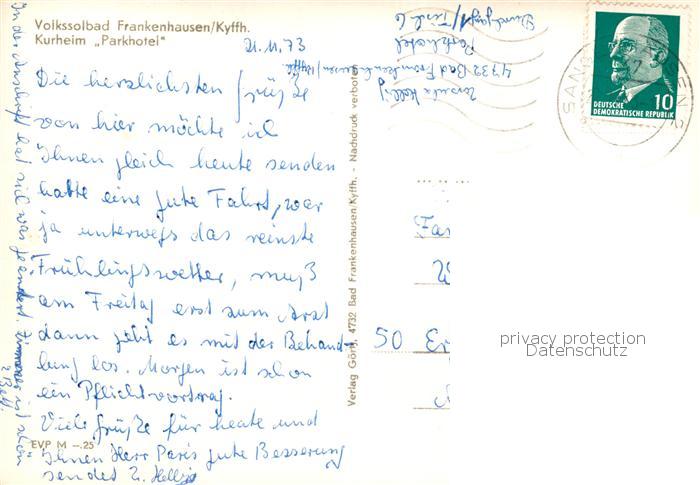 Volkssolbad Frankenhausen/Kyffh.
Kurheim „Parkhotel"
21.11.73
Die herzlichsten Grüße
von hier möchte ich
Ihnen gleich heute senden
hatte eine gute Fahrt, war
ja unterwegs das reinste
Frühlingswetter, muß
am Freitag erst zum Arzt
dann geht es mit der Behand-
lung los. Morgen ist schon
ein Pflichtvortrag.
Viele Grüße für heute und
Ihnen Herr Paris gute Besserung
sendet U.
EVP M -.25
In der Anschrift hat sich was geändert. Zimmer ist schön
2 Bett.
Verlag Görtz, 4732 Bad Frankenhausen/Kyffh. - Nachdruck verboten
Ursula
4732 Bad Frankenhausen/Kyffh.
Parkhotel
DEUTSCHE
DEMOKRATISCHE REPUBLIK
10
50 Er
privacy protection
Datenschutz